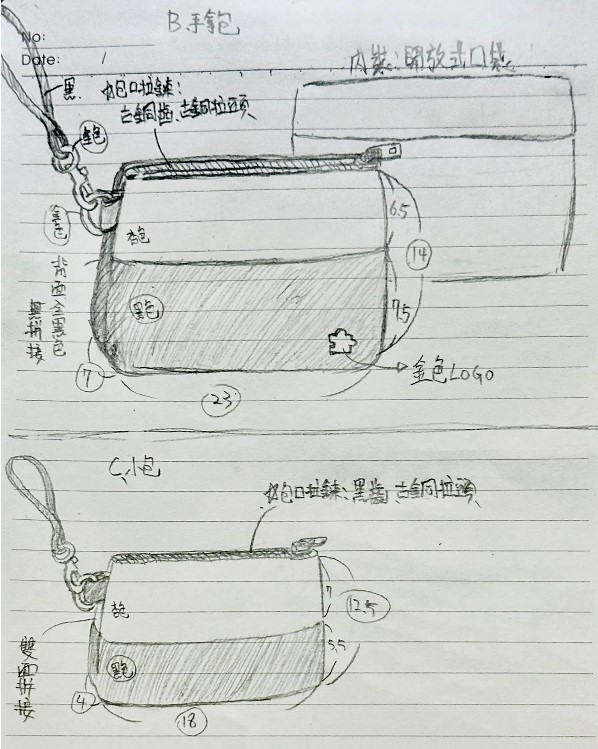 B手包
No:
Date: /
內裝:開放式口袋
黑
袋口拉鍊:
古銅齒、古銅拉頭
金色
金色
杏色
6.5
14
背面全黑色
無拼接
黑色
7.5
7
23
金色LOGO
C小包
袋口拉鍊:黑齒、古銅拉頭
杏色
7
12.5
雙面拼接
黑色
5.5
4
18